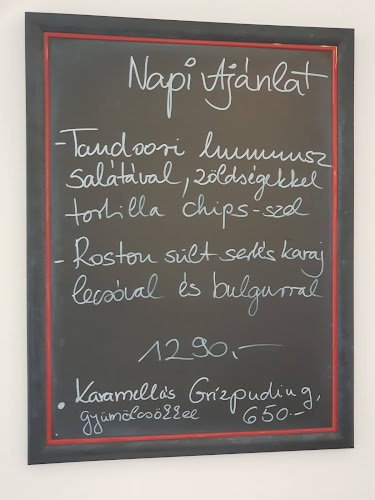 Napi Ajánlat
- Tandoori hummusz
salátával, zöldségekkel
tortilla chips-szel
- Roston sült sertés karaj
lecsóval és bulgurral
1290.-
• Karamellás Grízpuding,
gyümölcsökkel 650.-